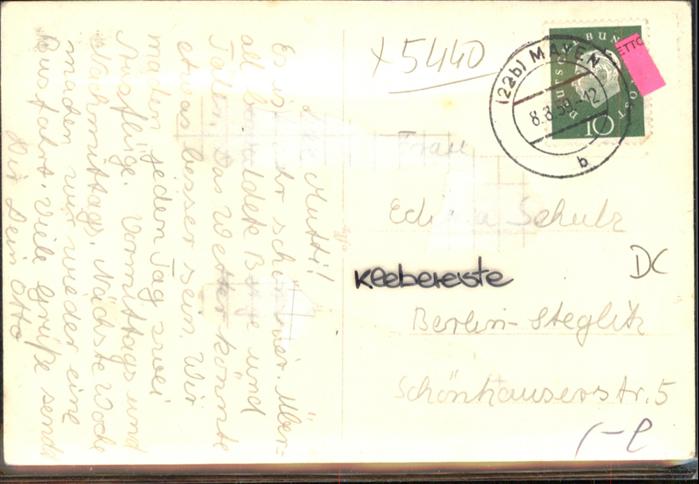 Liebe Mutti!
Es ist sehr schön hier. Über-
all bewaldete Berge und
Täler. Das Wetter könnte
etwas besser sein. Wir
machen jeden Tag zwei
Ausflüge. Vormittags und
Nachmittags. Nächste Woche
machen wir wieder eine
Busfahrt. Viele Grüße sendet
Dir Dein Otto
x 5440
(22b) MAYEN
8.8.59.-12
b
DEUTSCHE BUNDESPOST
10
Frau
Schulz
DC
Klebereste
Berlin-Steglitz
Schönhauserstr. 5